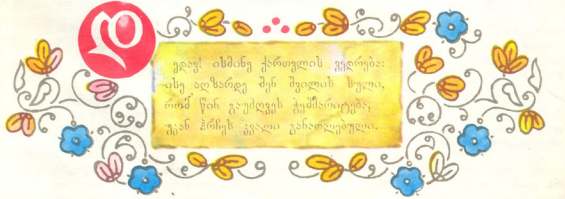 დ
ედავ! ისმინე ქართვლის ვედრება:
ისე აღზარდე შენ შვილის სული,
რომ წინ გაუძღვეს ჭეშმარიტება,
უკან ჰრჩეს კვალი განათლებული.